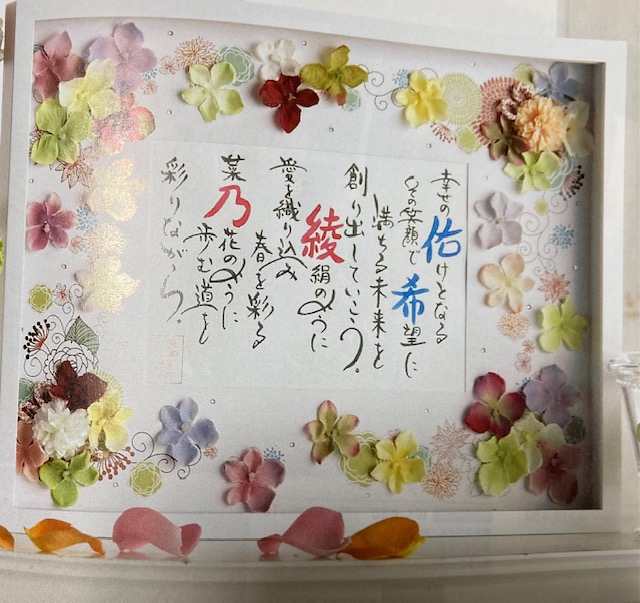 幸せの佑けとなる
その笑顔で希望に
満ちる未来を
創り出していこう。
綾絹のように
愛を織り込み
春を彩る
菜乃花のように
歩む道を
彩りながら。